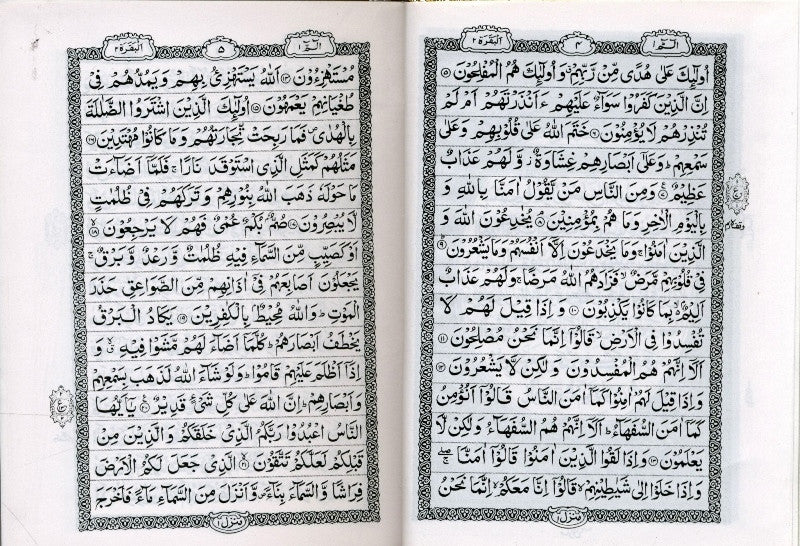 الٓمّٓ ١ ٤ البقرة ٢
اُولٰٓئِكَ عَلٰى هُدًى مِّنْ رَّبِّهِمْ ۗ وَاُولٰٓئِكَ هُمُ الْمُفْلِحُوْنَ ۝٥
اِنَّ الَّذِيْنَ كَفَرُوْا سَوَآءٌ عَلَيْهِمْ ءَاَنْذَرْتَهُمْ اَمْ لَمْ
تُنْذِرْهُمْ لَا يُؤْمِنُوْنَ ۝٦ خَتَمَ اللّٰهُ عَلٰى قُلُوْبِهِمْ وَعَلٰى
سَمْعِهِمْ ؕ وَعَلٰٓى اَبْصَارِهِمْ غِشَاوَةٌ ؗ وَّلَهُمْ عَذَابٌ
عَظِيْمٌ ۝٧ وَمِنَ النَّاسِ مَنْ يَّقُوْلُ اٰمَنَّا بِاللّٰهِ وَ
بِالْيَوْمِ الْاٰخِرِ وَمَا هُمْ بِمُؤْمِنِيْنَ ۝٨ يُخٰدِعُوْنَ اللّٰهَ وَ
الَّذِيْنَ اٰمَنُوْا ۚ وَمَا يَخْدَعُوْنَ اِلَّآ اَنْفُسَهُمْ وَمَا يَشْعُرُوْنَ ۝٩
فِيْ قُلُوْبِهِمْ مَّرَضٌ ۙ فَزَادَهُمُ اللّٰهُ مَرَضًا ۚ وَلَهُمْ عَذَابٌ
اَلِيْمٌۢ ۙ بِمَا كَانُوْا يَكْذِبُوْنَ ۝١٠ وَاِذَا قِيْلَ لَهُمْ لَا
تُفْسِدُوْا فِي الْاَرْضِ ۙ قَالُوْٓا اِنَّمَا نَحْنُ مُصْلِحُوْنَ ۝١١
اَلَآ اِنَّهُمْ هُمُ الْمُفْسِدُوْنَ وَلٰكِنْ لَّا يَشْعُرُوْنَ ۝١٢
وَاِذَا قِيْلَ لَهُمْ اٰمِنُوْا كَمَآ اٰمَنَ النَّاسُ قَالُوْٓا اَنُؤْمِنُ
كَمَآ اٰمَنَ السُّفَهَآءُ ؕ اَلَآ اِنَّهُمْ هُمُ السُّفَهَآءُ وَلٰكِنْ لَّا
يَعْلَمُوْنَ ۝١٣ وَاِذَا لَقُوا الَّذِيْنَ اٰمَنُوْا قَالُوْٓا اٰمَنَّا ۖۚ
وَاِذَا خَلَوْا اِلٰى شَيٰطِيْنِهِمْ ۙ قَالُوْٓا اِنَّا مَعَكُمْ ۙ اِنَّمَا نَحْنُ
منزل ١
الٓمّٓ ١ ٥ البقرة ٢
مُسْتَهْزِءُوْنَ ۝١٤ اَللّٰهُ يَسْتَهْزِئُ بِهِمْ وَيَمُدُّهُمْ فِيْ
طُغْيَانِهِمْ يَعْمَهُوْنَ ۝١٥ اُولٰٓئِكَ الَّذِيْنَ اشْتَرَوُا الضَّلٰلَةَ
بِالْهُدٰى ۪ فَمَا رَبِحَتْ تِّجَارَتُهُمْ وَمَا كَانُوْا مُهْتَدِيْنَ ۝١٦
مَثَلُهُمْ كَمَثَلِ الَّذِي اسْتَوْقَدَ نَارًا ۚ فَلَمَّآ اَضَآءَتْ
مَا حَوْلَهٗ ذَهَبَ اللّٰهُ بِنُوْرِهِمْ وَتَرَكَهُمْ فِيْ ظُلُمٰتٍ
لَّا يُبْصِرُوْنَ ۝١٧ صُمٌّۢ بُكْمٌ عُمْيٌ فَهُمْ لَا يَرْجِعُوْنَ ۝١٨
اَوْ كَصَيِّبٍ مِّنَ السَّمَآءِ فِيْهِ ظُلُمٰتٌ وَّرَعْدٌ وَّبَرْقٌ ۚ
يَجْعَلُوْنَ اَصَابِعَهُمْ فِيْٓ اٰذَانِهِمْ مِّنَ الصَّوَاعِقِ حَذَرَ
الْمَوْتِ ؕ وَاللّٰهُ مُحِيْطٌۢ بِالْكٰفِرِيْنَ ۝١٩ يَكَادُ الْبَرْقُ
يَخْطَفُ اَبْصَارَهُمْ ؕ كُلَّمَآ اَضَآءَ لَهُمْ مَّشَوْا فِيْهِ ۙ وَ
اِذَآ اَظْلَمَ عَلَيْهِمْ قَامُوْا ؕ وَلَوْ شَآءَ اللّٰهُ لَذَهَبَ بِسَمْعِهِمْ
وَاَبْصَارِهِمْ ؕ اِنَّ اللّٰهَ عَلٰى كُلِّ شَيْءٍ قَدِيْرٌ ۝٢٠ يٰٓاَيُّهَا
النَّاسُ اعْبُدُوْا رَبَّكُمُ الَّذِيْ خَلَقَكُمْ وَالَّذِيْنَ مِنْ
قَبْلِكُمْ لَعَلَّكُمْ تَتَّقُوْنَ ۝٢١ الَّذِيْ جَعَلَ لَكُمُ الْاَرْضَ
فِرَاشًا وَّالسَّمَآءَ بِنَآءً ۪ وَّاَنْزَلَ مِنَ السَّمَآءِ مَآءً فَاَخْرَجَ
منزل ١